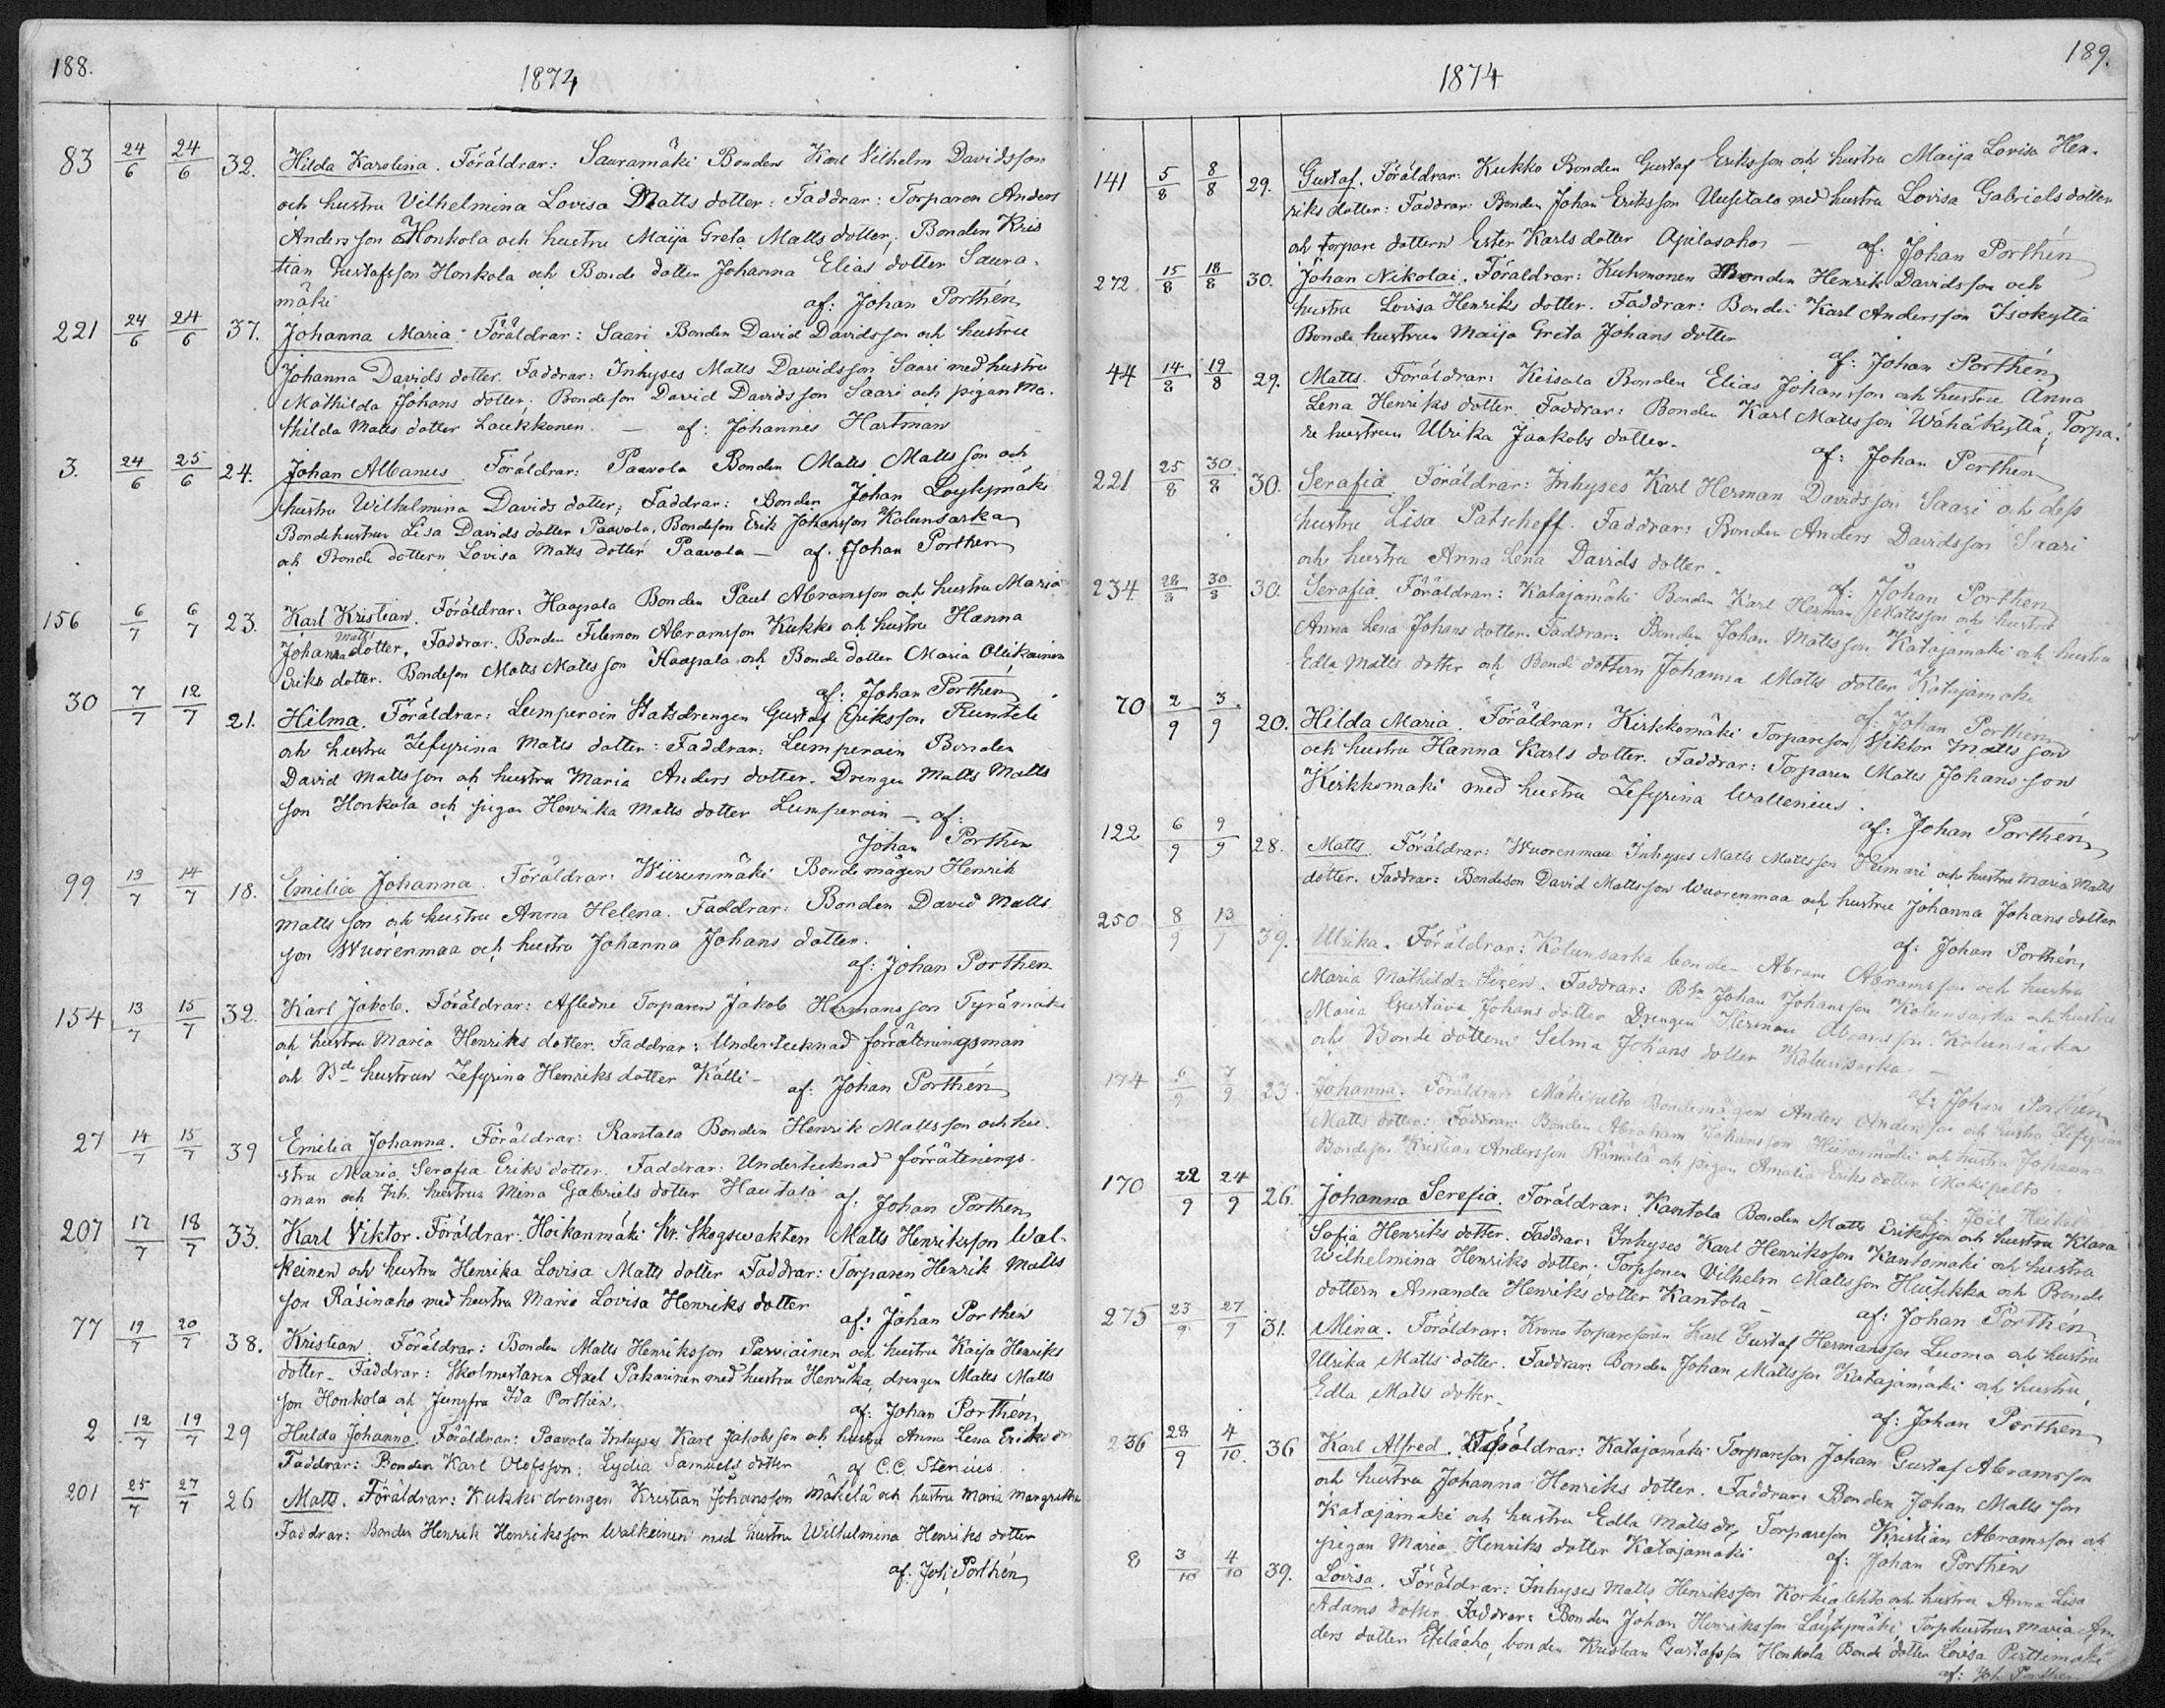 188.
1874
83 24/6 24/6 32. Hilda Karolina. Föräldrar: Sauramäki Bonden Karl Vilhelm Davidsson
och hustru Vilhelmina Lovisa Matts dotter: Faddrar: Torparen Anders
Andersson Honkola och hustru Maija Greta Matts dotter; Bonden Kris
tian Gustafsson Honkola och Bonde dotter Johanna Elias dotter Saura-
mäki af: Johan Porthén
221 24/6 24/6 37. Johanna Maria. Föräldrar: Saari Bonden David Davidsson och hustru
Johanna Davids dotter. Faddrar: Inhyses Matts Davidsson Saari med hustru
Mathilda Johans dotter; Bondeson David Davidsson Saari och pigan Ma-
thilda Matts dotter Laukkonen. — af: Johannes Hartman
3. 24/6 25/6 24. Johan Albanus. Föräldrar: Paavola Bonden Matts Mattsson och
hustru Wilhelmina Davids dotter; Faddrar: Bonden Johan Löytymäki
Bondehustrun Lisa Davids dotter Paavola, Bondeson Erik Johansson Kolunsarka
och Bonde dottern Lovisa Matts dotter Paavola — af. Johan Porthen
156 6/7 6/7 23. Karl Kristian. Föräldrar: Haapala Bonden Paul Abramsson och hustru Maria
Matts
Johans dotter, Faddrar: Bonden Filemon Abramsson Kukko och hustru Hanna
Eriks dotter. Bondeson Matts Mattsson Haapala och Bonde dotter Maria Ollikainen
af: Johan Porthén
30 7/7 12/7 21. Hilma. Föräldrar: Lumperoin Statsdrengen Gustaf Eriksson Runteli
och hustru Zefyrina Matts dotter: Faddrar: Lumperoin Bonden
David Mattsson och hustru Maria Anders dotter. Drengen Matts Matts
son Honkola och pigan Henrika Matts dotter Lumperoin — af:
Johan Porthen
99 13/7 14/7 18. Emilia Johanna. Föräldrar: Wiirunmäki Bondemågen Henrik
Mattsson och hustru Anna Helena. Faddrar: Bonden David Matts
son Wuorenmaa och hustru Johanna Johans dotter.
af: Johan Porthén
154 13/7 15/7 32. Karl Jakob. Föräldrar: Aflidne Torparen Jakob Hermansson Tyrämäki
och hustru Maria Henriks dotter. Faddrar: Undertecknad förrättningsman
och Bde hustrun Zefyrina Henriks dotter Källi - af: Johan Porthén
27 14/7 15/7 39 Emilia Johanna. Föräldrar: Rantala Bonden Henrik Mattsson och hu-
stru Maria Serafia Eriks dotter. Faddrar: Undertecknad förrättnings-
man och Inh. hustrun Mina Gabriels dotter Hautala af: Johan Porthén
207 17/7 18/7 33. Karl Viktor. Föräldrar: Hoikanmäki Kr. Skogswakten Matts Henriksson Wal-
keinen och hustru Henrika Lovisa Matts dotter Faddrar: Torparen Henrik Matts
son Räsinaho med hustru Maria Lovisa Henriks dotter af: Johan Porthen
77 19/7 20/7 38. Kristian. Föräldrar: Bonden Matts Henriksson Parviainen och hustru Kaisa Henriks
dotter. Faddrar: Skolmestaren Axel Pakarinen med hustru Henrika, drengen Matts Matts
son Honkola och Jungfru Ida Porthén. af: Johan Porthén
2 12/7 19/7 29 Hulda Johanna. Föräldrar: Paavola Inhyses Karl Jakobsson och hustru Anna Lena Eriks dr
Faddrar: Bonden Karl Olofsson; Lydia Samuels dotter af C.C. Stenius.
201 25/7 27/7 26 Matts. Föräldrar: Kukko drengen Kristian Johansson Mäkelä och hustru Maria Margretha
Faddrar: Bonden Henrik Henriksson Walkeinen med hustru Wilhelmina Henriks dotter
af. Joh. Porthén
189.
1874
141 5/8 8/8 29. Gustaf. Föräldrar: Kukko Bonden Gustaf Eriksson och hustru Maija Lovisa Hen-
riks dotter: Faddrar: Bonden Johan Eriksson Uusitalo med hustru Lovisa Gabriels dotter
och torpare dottern Ester Karls dotter Apilasahon — af: Johan Porthén
272. 15/8 18/8 30. Johan Nikolai. Föräldrar: Kuhmonen Bonden Henrik Davidsson och
hustru Lovisa Henriks dotter. Faddrar: Bonden Karl Andersson Isokyttä
Bonde hustrun Maija Greta Johans dotter
af: Johan Porthén
44 14/8 19/8 29. Matts. Föräldrar: Keisala Bonden Elias Johansson och hustru Anna
Lena Henriks dotter. Faddrar: Bonden Karl Mattsson Wähäkyttä; Torpa-
re hustrun Ulrika Jaakobs dotter.
af: Johan Porthén
221 25/8 30/8 30. Serafia Föräldrar: Inhyses Karl Herman Davidsson Saari och dess
hustru Lisa Patscheff. Faddrar: Bonden Anders Davidsson Saari
och hustru Anna Lena Davids dotter.
af: Johan Porthen
234 28/8 30/8 30. Serafia. Föräldrar: Katajamäki Bonden Karl Herman Mattsson och hustru
Anna Lena Johans dotter. Faddrar: Bonden Johan Mattsson Katajamäki och hustru
Edla Matts dotter och Bonde dottern Johanna Matts dotter Katajamäki
af: Johan Porthén
70 2/9 3/9 20. Hilda Maria. Föräldrar: Kirkkomäki Torpareson Viktor Mattsson
och hustru Hanna Karls dotter. Faddrar: Torparen Matts Johansson
Kirkkomäki med hustru Zefyrina Wallenius.
af: Johan Porthén
122 6/9 9/9 28. Matts. Föräldrar: Wuorenmaa Inhyses Matts Mattsson Humari och hustru Maria Matts
dotter. Faddrar: Bondeson David Mattsson Wuorenmaa och hustru Johanna Johans dotter
af: Johan Porthén,
250 8/9 13/9 39. Ulrika. Föräldrar: Kolunsarka bonden Abram Abramsson och hustru
Maria Mathilda Sirén. Faddrar: Bdn Johan Johansson Kolunsarka och hustru
Maria Gustava Johans dotter Drengen Herman Abramsson Kolunsarka
och Bonde dottern Selma Johans dotter Kolunsarka —
af: Johan Porthén
174 6/9 7/9 23. Johanna. Föräldrar: Mäkipelto Bondemågen Anders Andersson och hustru Zefyrina
Matts dotter: Faddrar: Bonden Abraham Johansson Hiironmäki och hustru Johanna
Bondeson Kristian Andersson Rämälä och pigan Amalia Eriks dotter Mäkipelto
af: Joel Heikel
170 22/9 24/9 26. Johanna Serefia. Föräldrar: Kantola Bonden Matts Eriksson och hustru Klara
Sofia Henriks dotter. Faddrar: Inhyses Karl Henriksson Kantomäki och hustru
Wilhelmina Henriks dotter; Torpsonen Vilhelm Mattsson Huhkka och Bonde
dottern Amanda Henriks dotter Kantola — af: Johan Porthén
275 23/9 27/9 31. Mina. Föräldrar: Krono torparesonen Karl Gustaf Hermansson Luoma och hustru
Ulrika Matts dotter. Faddrar: Bonden Johan Mattsson Katajamäki och hustru
Edla Matts dotter.
af: Johan Porthen
236 28/9 4/10. 36 Karl Alfred. Föräldrar: Katajamäki Torpareson Johan Gustaf Abramsson
och hustru Johanna Henriks dotter. Faddrar: Bonden Johan Mattsson
Katajamäki och hustru Edla Matts dr, Torpareson Kristian Abramsson och
pigan Maria Henriks dotter Katajamäki af: Johan Porthén
8 3/10 4/10 39. Lovisa. Föräldrar: Inhyses Matts Henriksson Korkialehto och hustru Anna Lisa
Adams dotter. Faddrar: Bonden Johan Henriksson Löytymäki, Torphustrun Maria An-
ders dotter Eteläaho, bonden Kristian Gustafsson Honkola Bonde dotter Lovisa Perttimäki
af: Joh Porthen